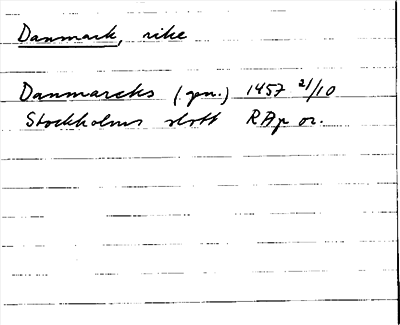 Danmark, rike
Danmarcks (gen.) 1457 21/10
Stockholms slott RAp or.